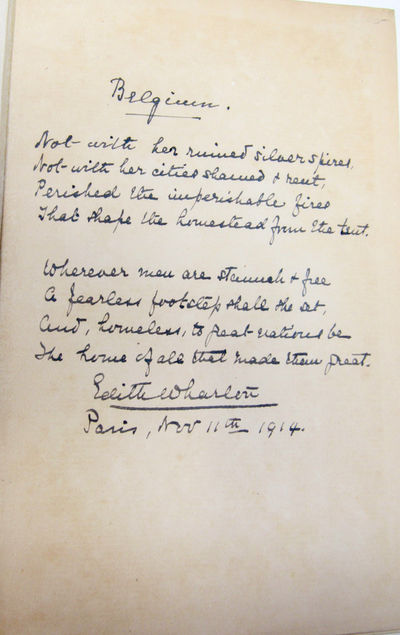 Belgium.
Not with her ruined silver spires,
Not with her cities shamed & rent,
Perished the imperishable fires
That shape the homestead from the tent.
Wherever men are staunch & free
A fearless footstep shall she set,
And, homeless, to great nations be
The home of all that made them great.
Edith Wharton
Paris, Nov 11th 1914.